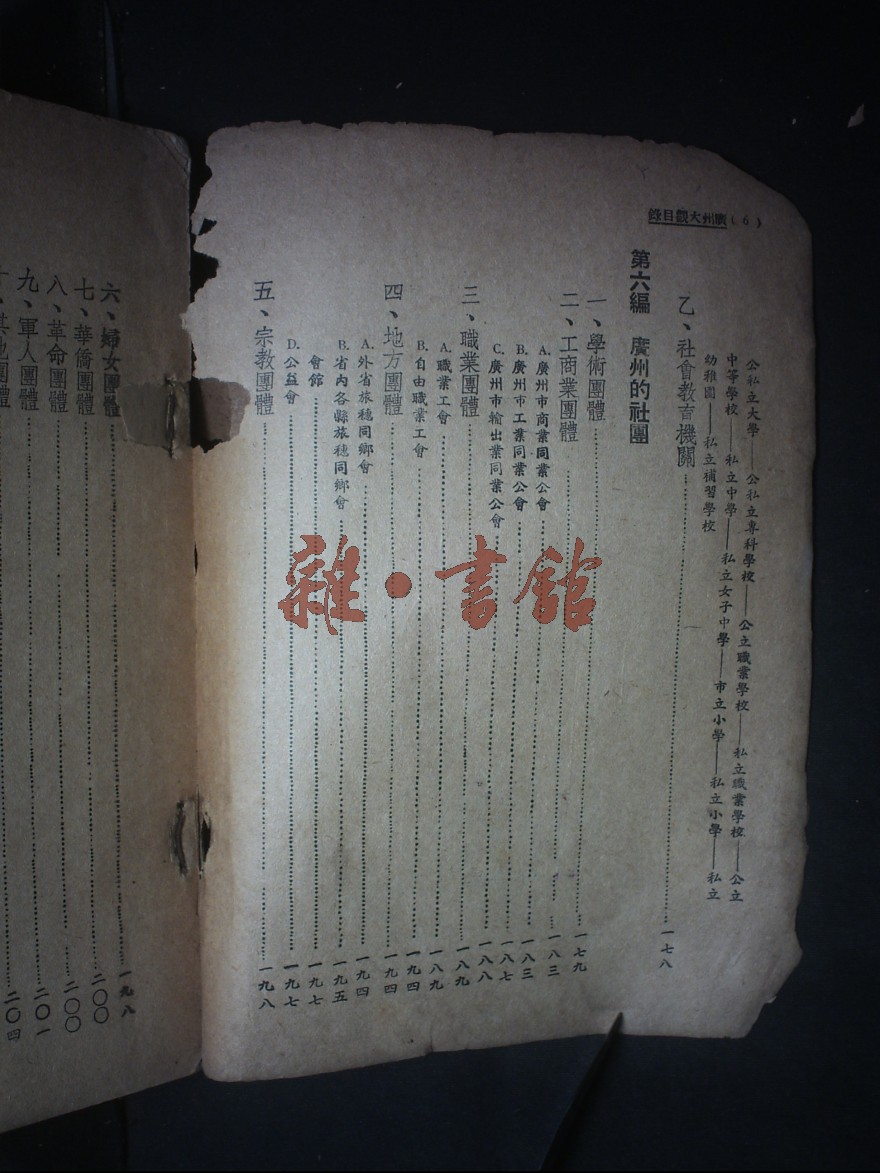 廣州大觀目錄（6）
公私立大學——公私立專科學校——公立職業學校——私立職業學校——公立
中等學校——私立中學——私立女子中學——市立小學——私立小學——私立
幼稚園——私立補習學校
乙、社會教育機關 一七八
第六編 廣州的社團
一、學術團體 一七九
二、工商業團體 一八三
A. 廣州市商業同業公會 一八三
B. 廣州市工業同業公會 一八七
C. 廣州市輸出業同業公會 一八八
三、職業團體 一八九
A. 職業工會 一八九
B. 自由職業工會 一九四
四、地方團體 一九四
A. 外省旅穗同鄉會 一九四
B. 省內各縣旅穗同鄉會 一九五
會館 一九七
D. 公益會 一九七
五、宗教團體 一九八
六、婦女團體 一九八
七、華僑團體 二〇〇
八、革命團體 二〇〇
九、軍人團體 二〇一
十、其他團體 二〇四
雜·書館